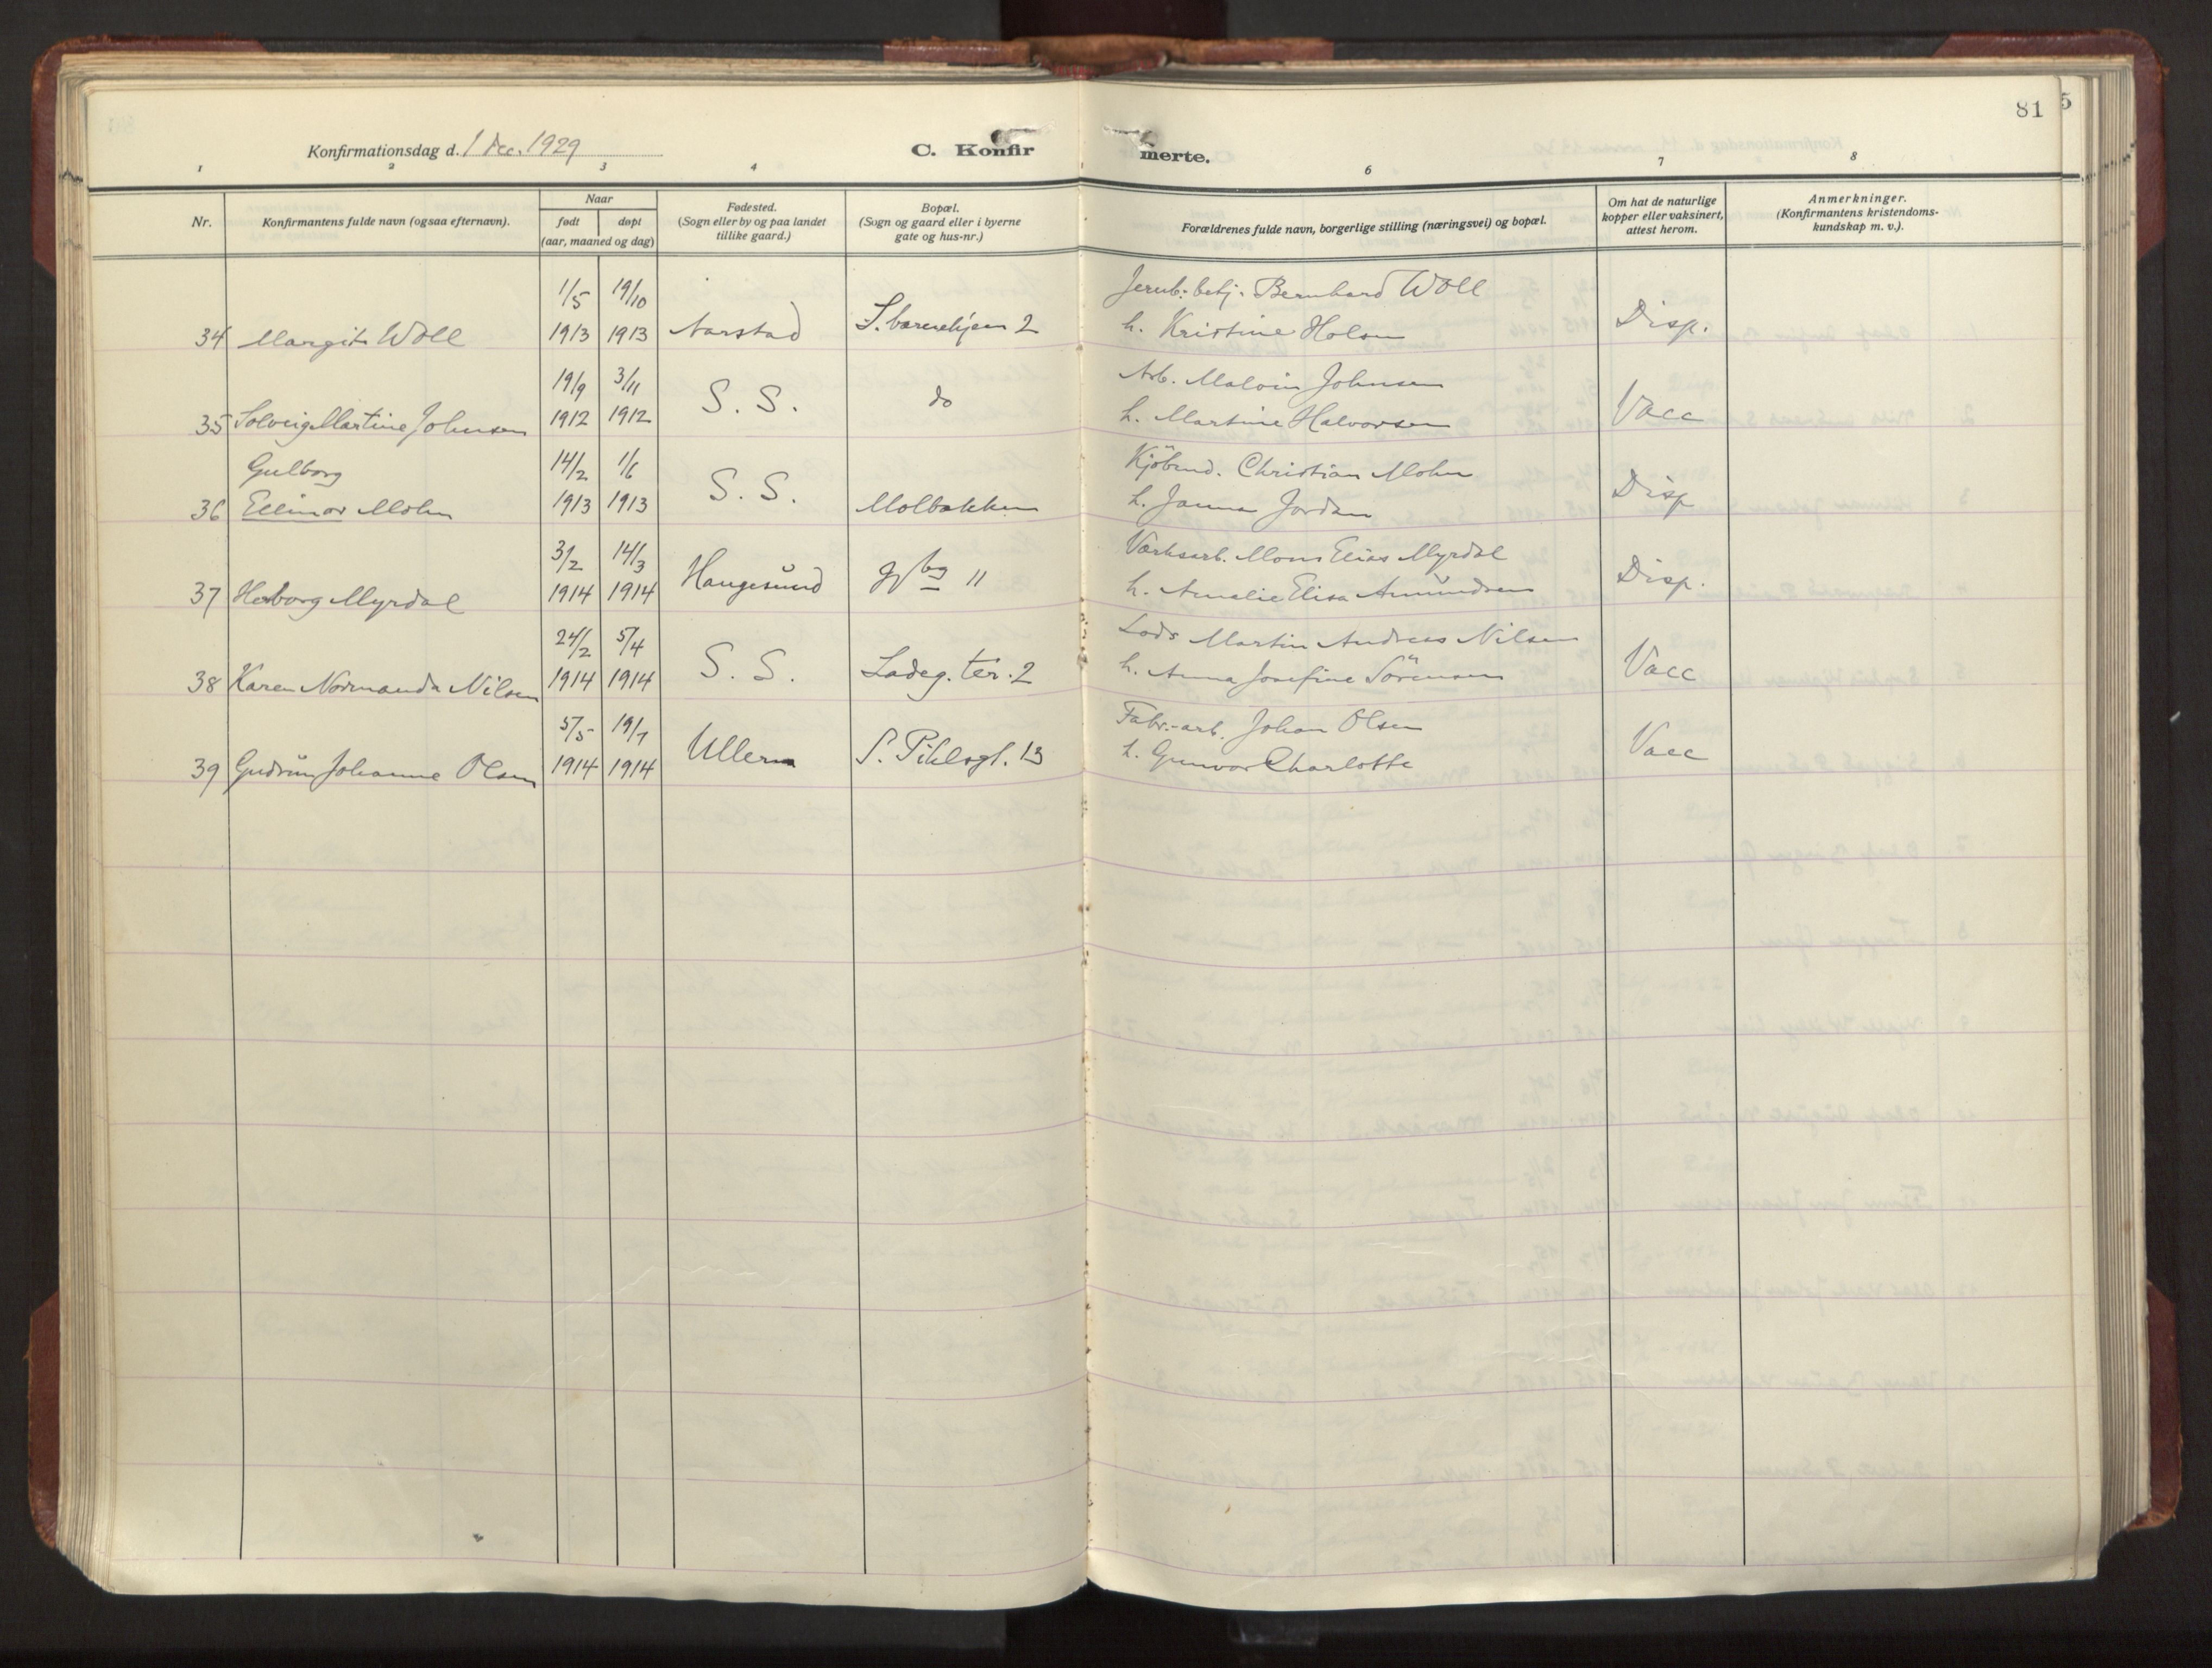 81
5
Konfirmationsdag d. 1 Dec. 1929
C. Konfirmerte.
1 2 3 4 5 6 7 8
Nr.
Konfirmantens fulde navn (ogsaa efternavn).
Naar
født døpt
(aar, maaned og dag)
Fødested.
(Sogn eller by og paa landet
tillike gaard.)
Bopæl.
(Sogn og gaard eller i byerne
gate og hus-nr.)
Forældrenes fulde navn, borgerlige stilling (næringsvei) og bopæl.
Om hat de naturlige
kopper eller vaksinert,
attest herom.
Anmerkninger.
(Konfirmantens kristendoms-
kundskap m. v.).
1/5 19/10 Jernb. betj. Bernhard Woll
34 Margit Woll 1913 1913 Aarstad 2 h. Kristine Holsen Disp.
19/9 3/11 Arb. Malvin Johnsen
35 Solveig Martine Johnsen 1912 1912 S. S. do h. Martine Halvorsen Vacc
Gulborg 14/2 1/6 Kjöbmd. Christian Mohn
36 Ellinor Mohn 1913 1913 S. S. Molbakken h. Janna Jordan Disp
3/2 14/3 Værksarb. Mons Elias Myrdal
37 Herborg Myrdal 1914 1914 Haugesund 11 h. Amalie Elisa Amundsen Disp.
24/2 5/4 Lods Martin Andreas Nilsen
38 Karen Normanda Nilsen 1914 1914 S. S. Ladeg. ter. 2 h. Anna Josefine Sörensen Vacc
5/5 19/7 Fabr.-arb. Johan Olsen
39 Gudrun Johanne Olsen 1914 1914 Ullern P. Pihlsgt. 13 h. Gunvor Charlotte Vacc